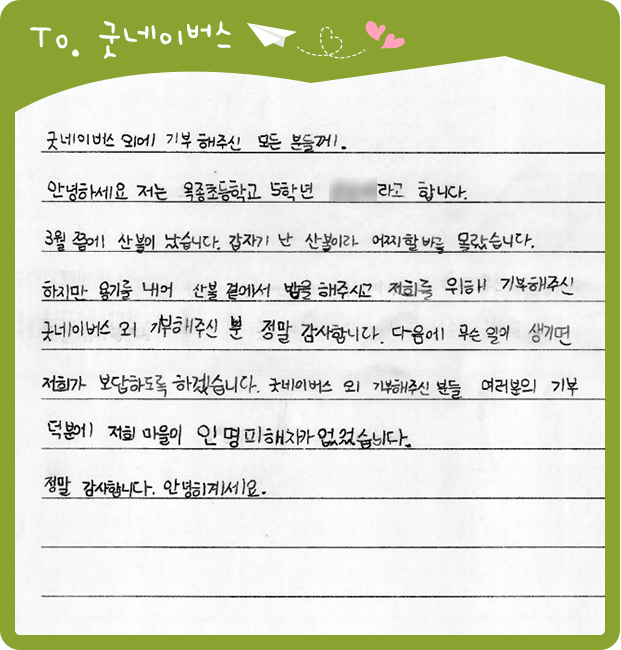 To. 굿네이버스
굿네이버스 외에 기부 해주신 모든 분들께.
안녕하세요 저는 옥종초등학교 5학년 라고 합니다.
3월 쯤에 산불이 났습니다. 갑자기 난 산불이라 어찌할 바를 몰랐습니다.
하지만 용기를 내어 산불 곁에서 밥을 해주시고 저희를 위해 기부해주신
굿네이버스 외 기부해주신 분 정말 감사합니다. 다음에 무슨 일이 생기면
저희가 보답하도록 하겠습니다. 굿네이버스 외 기부해주신 분들 여러분의 기부
덕분에 저희 마을이 인명피해자가 없었습니다.
정말 감사합니다. 안녕히계세요.